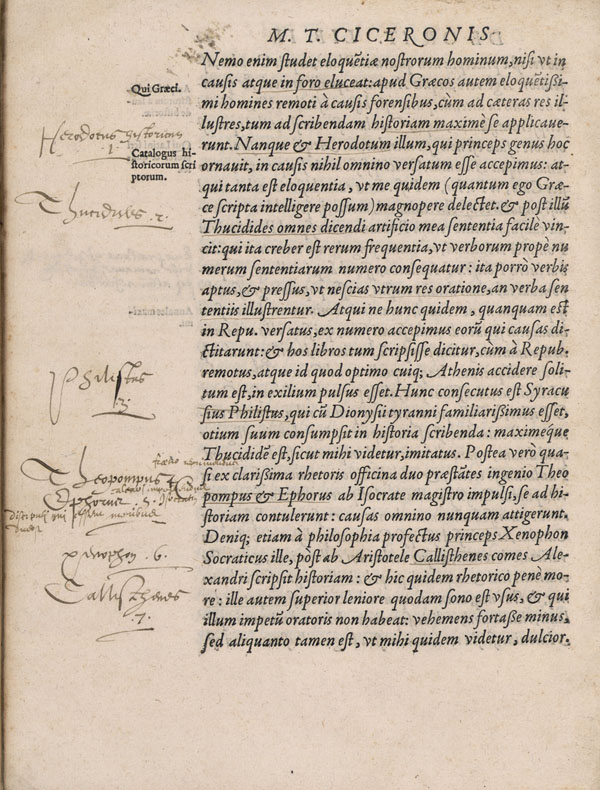 M. T. CICERONIS
Nemo enim studet eloquẽtiæ nostrorum hominum, nisi vt in
causis atque in foro eluceat: apud Græcos autem eloquẽtißi-
mi homines remoti à causis forensibus, cùm ad cæteras res il-
lustres, tum ad scribendam historiam maximè se applicaue-
runt. Nanque & Herodotum illum, qui princeps genus hoc
ornauit, in causis nihil omnino versatum esse accepimus: at-
qui tanta est eloquentia, vt me quidem (quantum ego Græ-
ce scripta intelligere possum) magnopere delectet. & post illũ
Thucidides omnes dicendi artificio mea sententia facilè vin-
cit: qui ita creber est rerum frequentia, vt verborum propè nu-
merum sententiarum numero consequatur: ita porrò verbis
aptus, & pressus, vt nescias vtrum res oratione, an verba sen-
tentiis illustrentur. Atqui ne hunc quidem, quanquam est
in Repu. versatus, ex numero accepimus eorũ qui causas di-
ctitarunt: & hos libros tum scripsisse dicitur, cùm à Repub.
remotus, atque id quod optimo cuiq; Athenis accidere soli-
tum est, in exilium pulsus esset. Hunc consecutus est Syracu
sius Philistus, qui cũ Dionysii tyranni familiarissimus esset,
otium suum consumpsit in historia scribenda: maximeque
Thucididẽ est, sicut mihi videtur, imitatus. Postea verò qua-
si ex clarißima rhetoris officina duo præstãtes ingenio Theo
pompus & Ephorus ab Isocrate magistro impulsi, se ad hi-
storiam contulerunt: causas omnino nunquam attigerunt.
Deniq; etiam à philosophia profectus princeps Xenophon
Socraticus ille, pòst ab Aristotele Callisthenes comes Ale-
xandri scripsit historiam: & hic quidem rhetorico penè mo-
re: ille autem superior leniore quodam sono est vsus, & qui
illum impetũ oratoris non habeat: vehemens fortaße minus,
sed aliquanto tamen est, vt mihi quidem videtur, dulcior.
Qui Græci.
Herodotus historicus
1.
Catalogus hi-
storicorum scri
ptorum.
Thucidides 2.
Philistus
3.
Theopompus 4
Ephorus 5.
Xenophon 6.
Callisthenes
7.